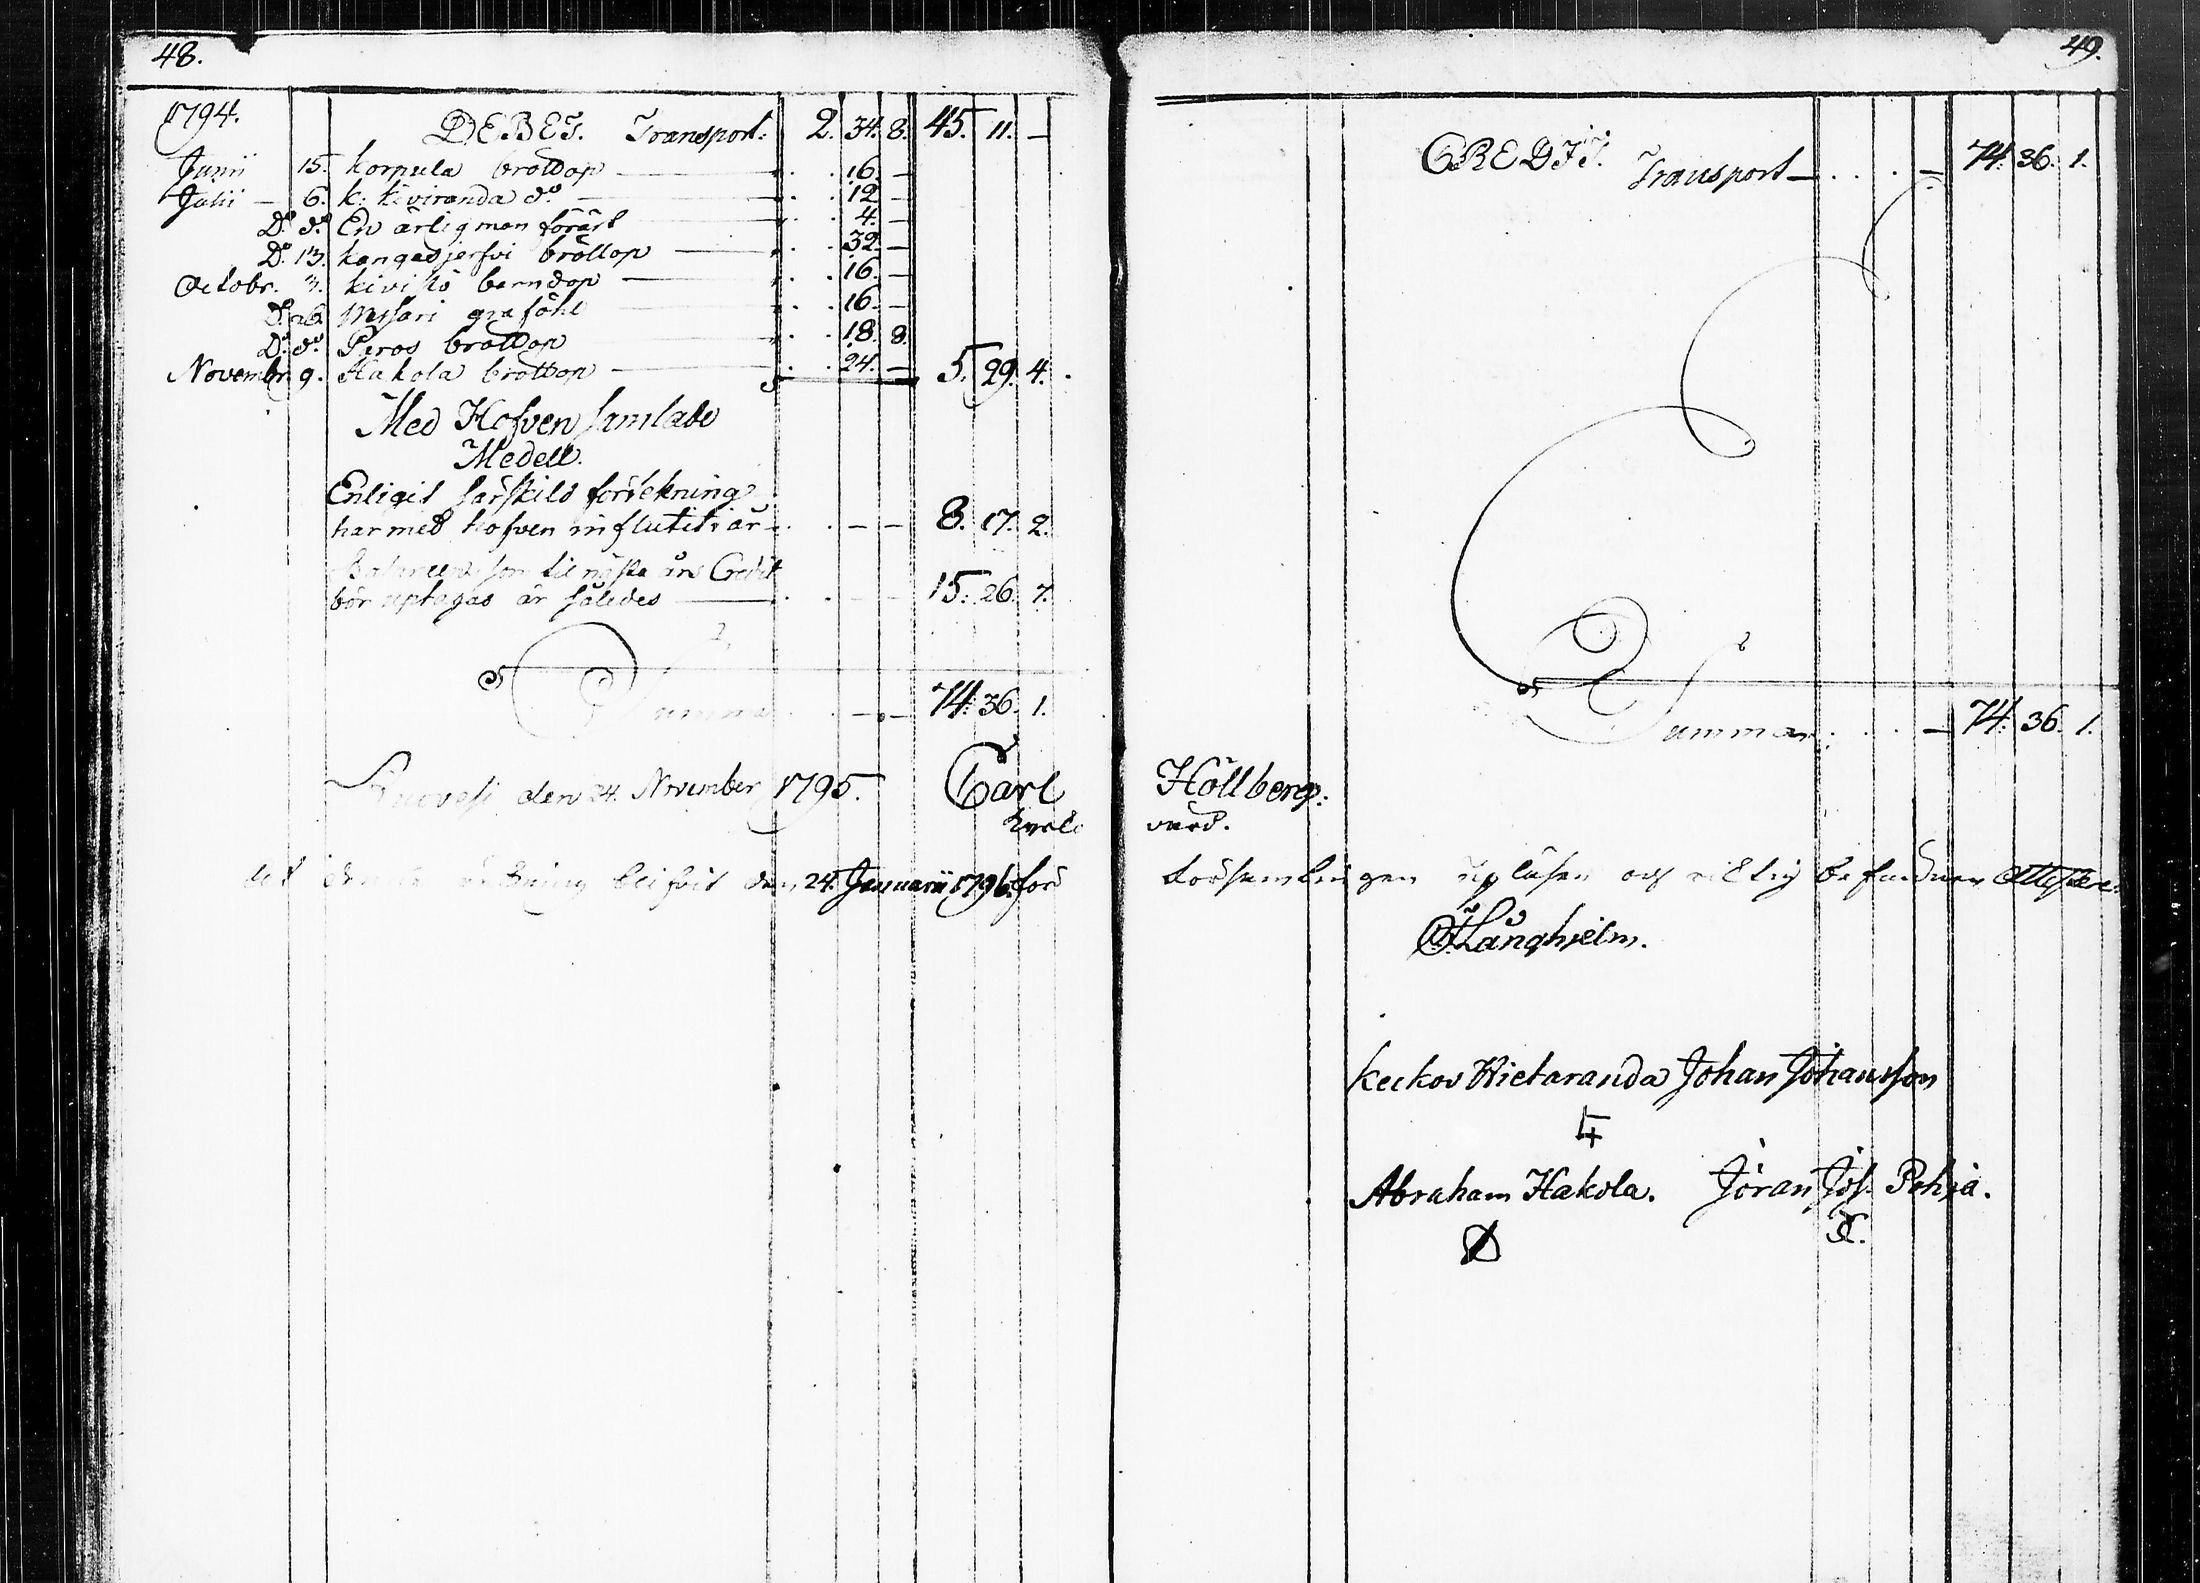 48.
1794. DEBET. Transport: 2. 34. 8. 45. 11. —
Junii 15. korpula bröllop — 16. —
Julii — 6. k: kiviranda do — 12 —
Do do En ärlig man förärt 4. —
D. 13. kangasjerfvi bröllop — 32. —
Octobr. 3. kivistö barndop — 16. —
D. 26. graföhl 16. —
Do do Piros bröllop — 18. 8.
Novembr. 9. Hakola bröllop — 24. — 5. 29. 4.
Med Hofven samlade
Medell.
Enligit särskild förtekning
har med hofven influtit i år — — 8. 17. 2.
Balancen som til nästa års Credit
bör uptagas är således — 15. 26. 7.
Summa — — 74. 36. 1.
den 24. November 1795. Carl
kyrko
det denna räkning blifvit den 24. Januarii 1796. för
49.
CREDIT. Transport — 74. 36. 1.
Summa — 74. 36. 1.
Höllberg:
värd.
församlingen upläsen och riktig befunden attesterar
Långhielm.
keckos Wietaranda Johan Johansson
Abraham Hakola. Jöran Jos. Pehjä.